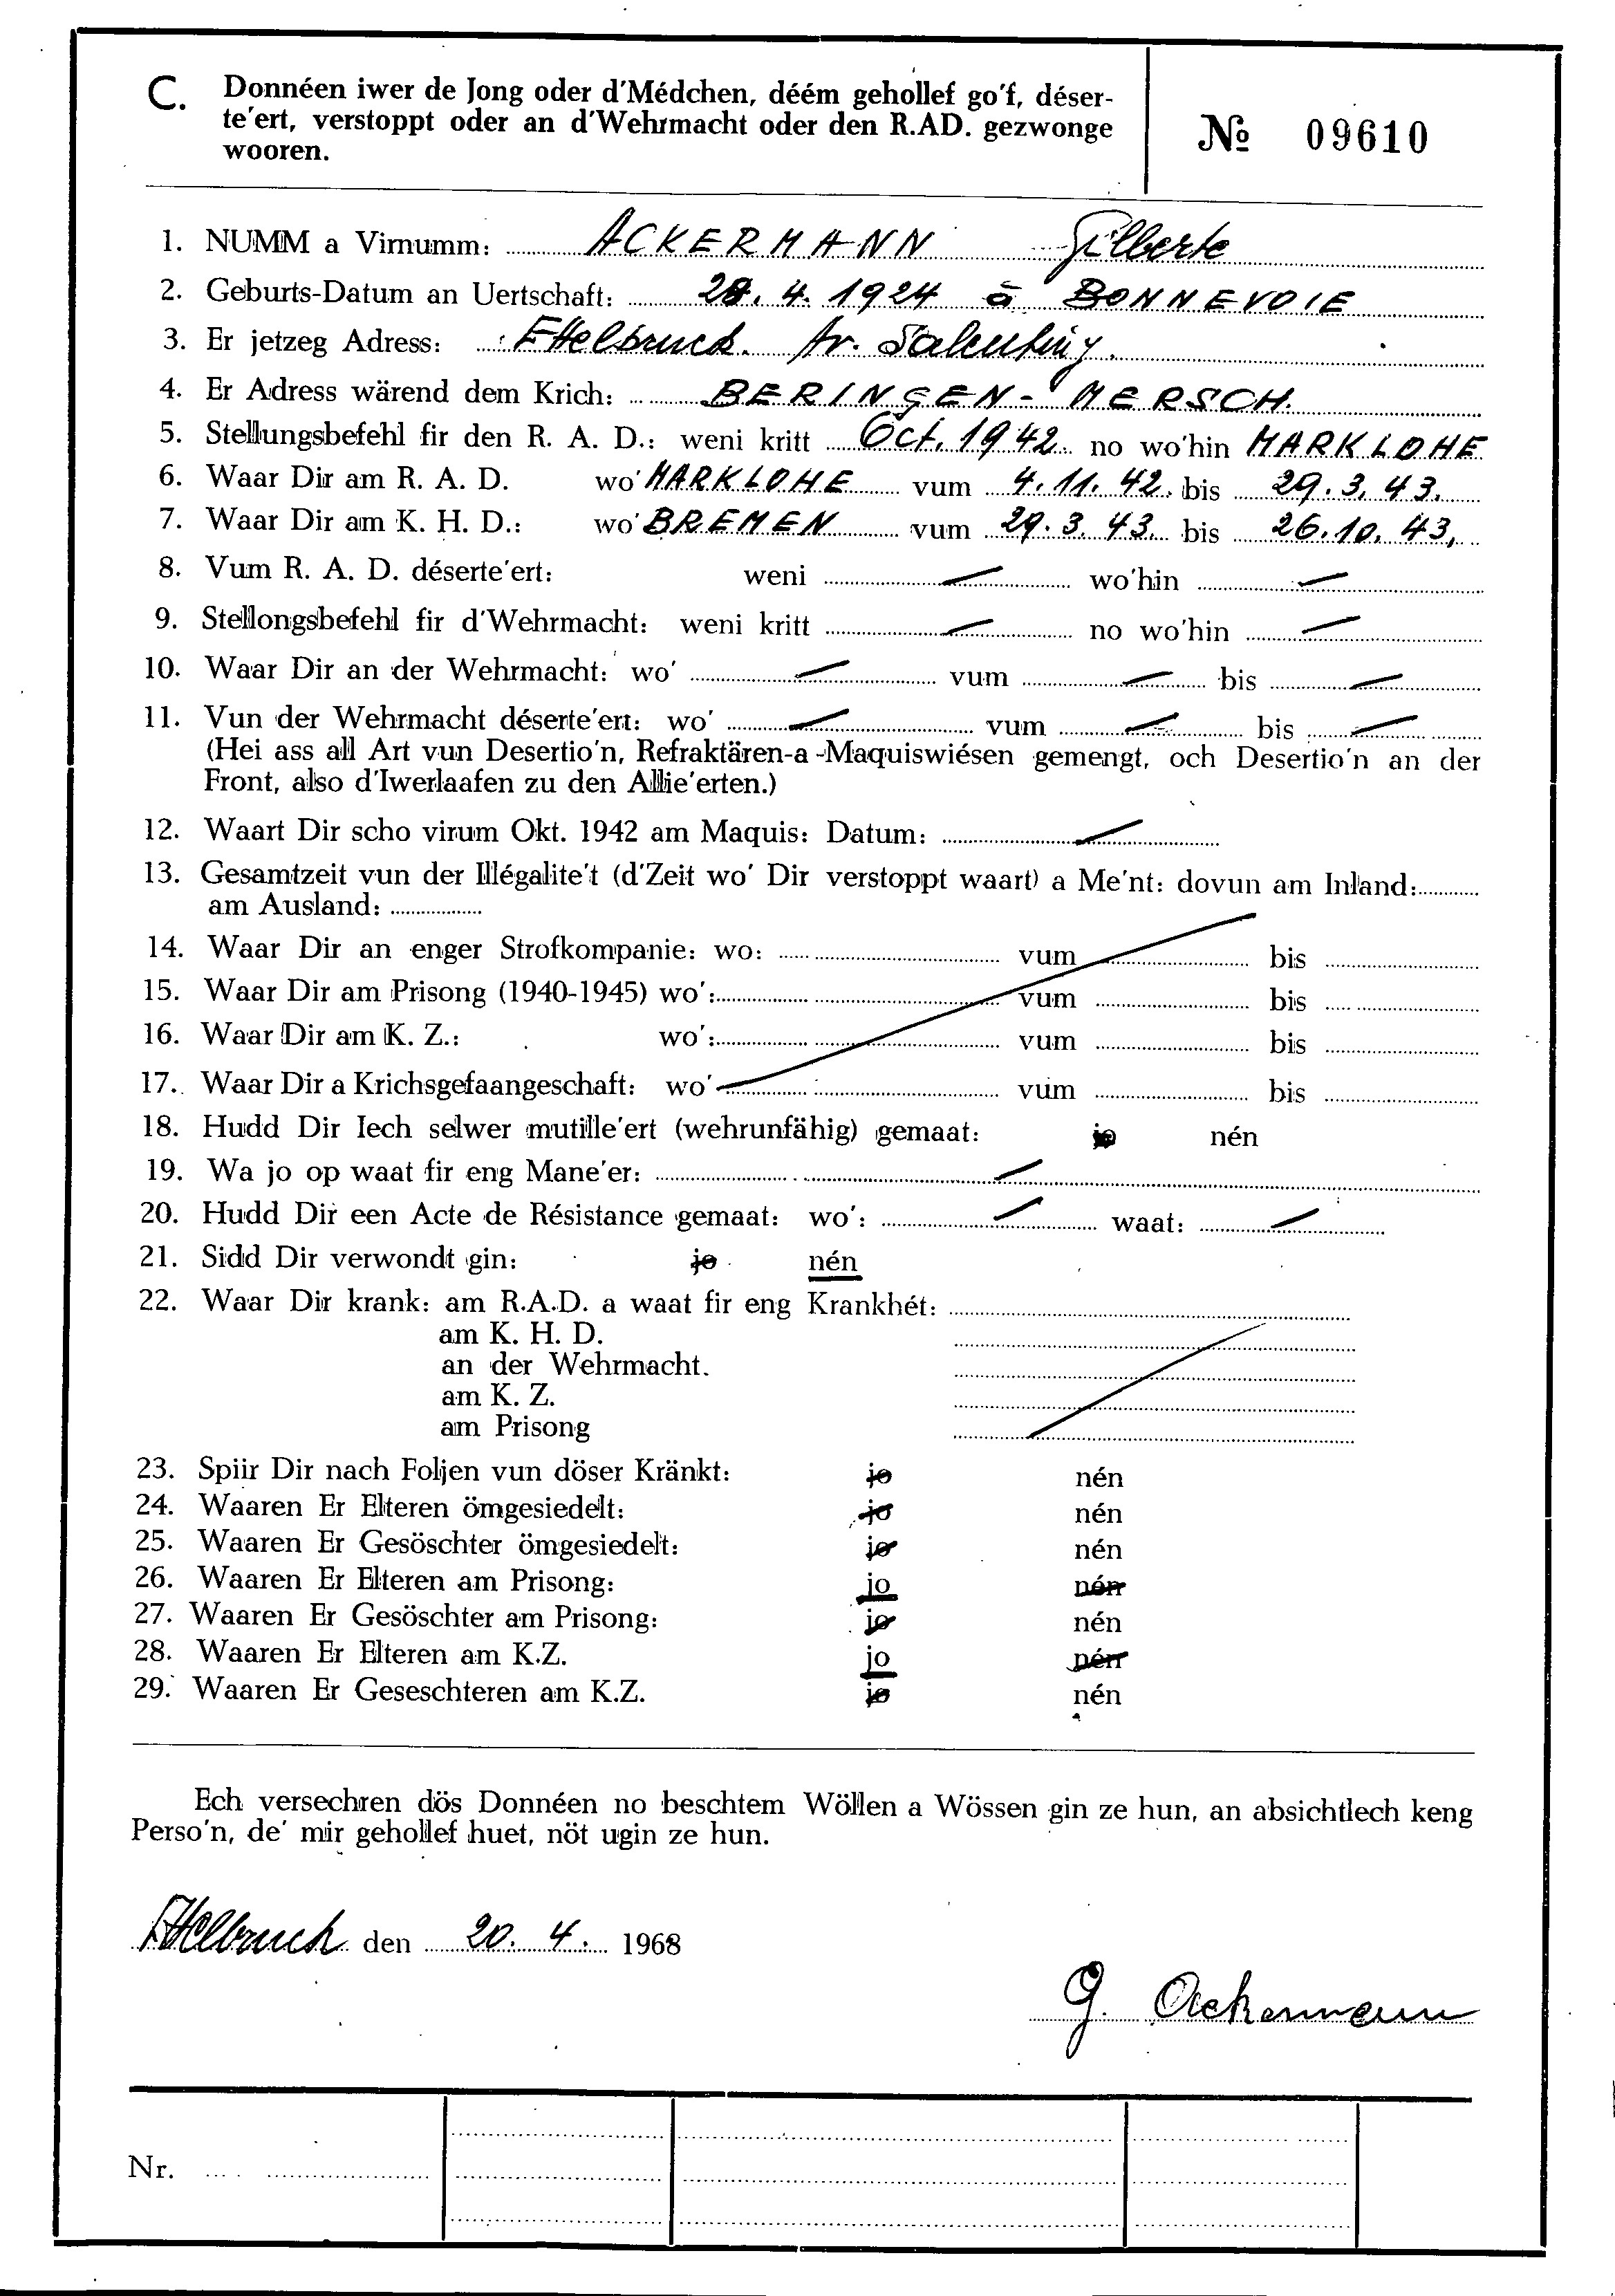 C. Donnéen iwer de Jong oder d'Médchen, déém gehollef go'f, déser-
te'ert, verstoppt oder an d'Wehrmacht oder den R.AD. gezwonge
wooren.
№ 09610
1. NUMM a Virnumm: ACKERMANN Gilberte
2. Geburts-Datum an Uertschaft: 28. 4. 1924 à BONNEVOIE
3. Er jetzeg Adress: Ettelbruck. Av. Salentiny.
4. Er Adress wärend dem Krich: BERINGEN - MERSCH.
5. Stellungsbefehl fir den R. A. D.: weni kritt Oct. 1942 no wo'hin MARKLOHE
6. Waar Dir am R. A. D. wo' MARKLOHE vum 4. 11. 42. bis 29. 3. 43.
7. Waar Dir am K. H. D.: wo' BREMEN vum 29. 3. 43. bis 26. 10. 43.
8. Vum R. A. D. déserte'ert: weni — wo'hin —
9. Stellongsbefehl fir d'Wehrmacht: weni kritt — no wo'hin —
10. Waar Dir an der Wehrmacht: wo' — vum — bis —
11. Vun der Wehrmacht déserte'ert: wo' — vum — bis —
(Hei ass all Art vun Desertio'n, Refraktären-a-Maquiswiésen gemengt, och Desertio'n an der
Front, also d'Iwerlaafen zu den Allie'erten.)
12. Waart Dir scho virum Okt. 1942 am Maquis: Datum: —
13. Gesamtzeit vun der Illégalite't (d'Zeit wo' Dir verstoppt waart) a Me'nt: dovun am Inland:
am Ausland:
14. Waar Dir an enger Strofkompanie: wo: vum bis
15. Waar Dir am Prisong (1940-1945) wo': vum bis
16. Waar Dir am K. Z.: wo': vum bis
17. Waar Dir a Krichsgefaangeschaft: wo' vum bis
18. Hudd Dir Iech selwer mutille'ert (wehrunfähig) gemaat: jo nén
19. Wa jo op waat fir eng Mane'er: —
20. Hudd Dir een Acte de Résistance gemaat: wo': — waat: —
21. Sidd Dir verwondt gin: jo nén
22. Waar Dir krank: am R.A.D. a waat fir eng Krankhét:
am K. H. D.
an der Wehrmacht.
am K. Z.
am Prisong
23. Spiir Dir nach Foljen vun döser Kränkt: jo nén
24. Waaren Er Elteren ömgesiedelt: jo nén
25. Waaren Er Gesöschter ömgesiedelt: jo nén
26. Waaren Er Elteren am Prisong: jo nén
27. Waaren Er Gesöschter am Prisong: jo nén
28. Waaren Er Elteren am K.Z. jo nén
29. Waaren Er Geseschteren am K.Z. jo nén
Ech versechren dös Donnéen no beschtem Wöllen a Wössen gin ze hun, an absichtlech keng
Perso'n, de' mir gehollef huet, nöt ugin ze hun.
Ettelbruck den 20. 4. 1968
G. Ackermann
Nr.